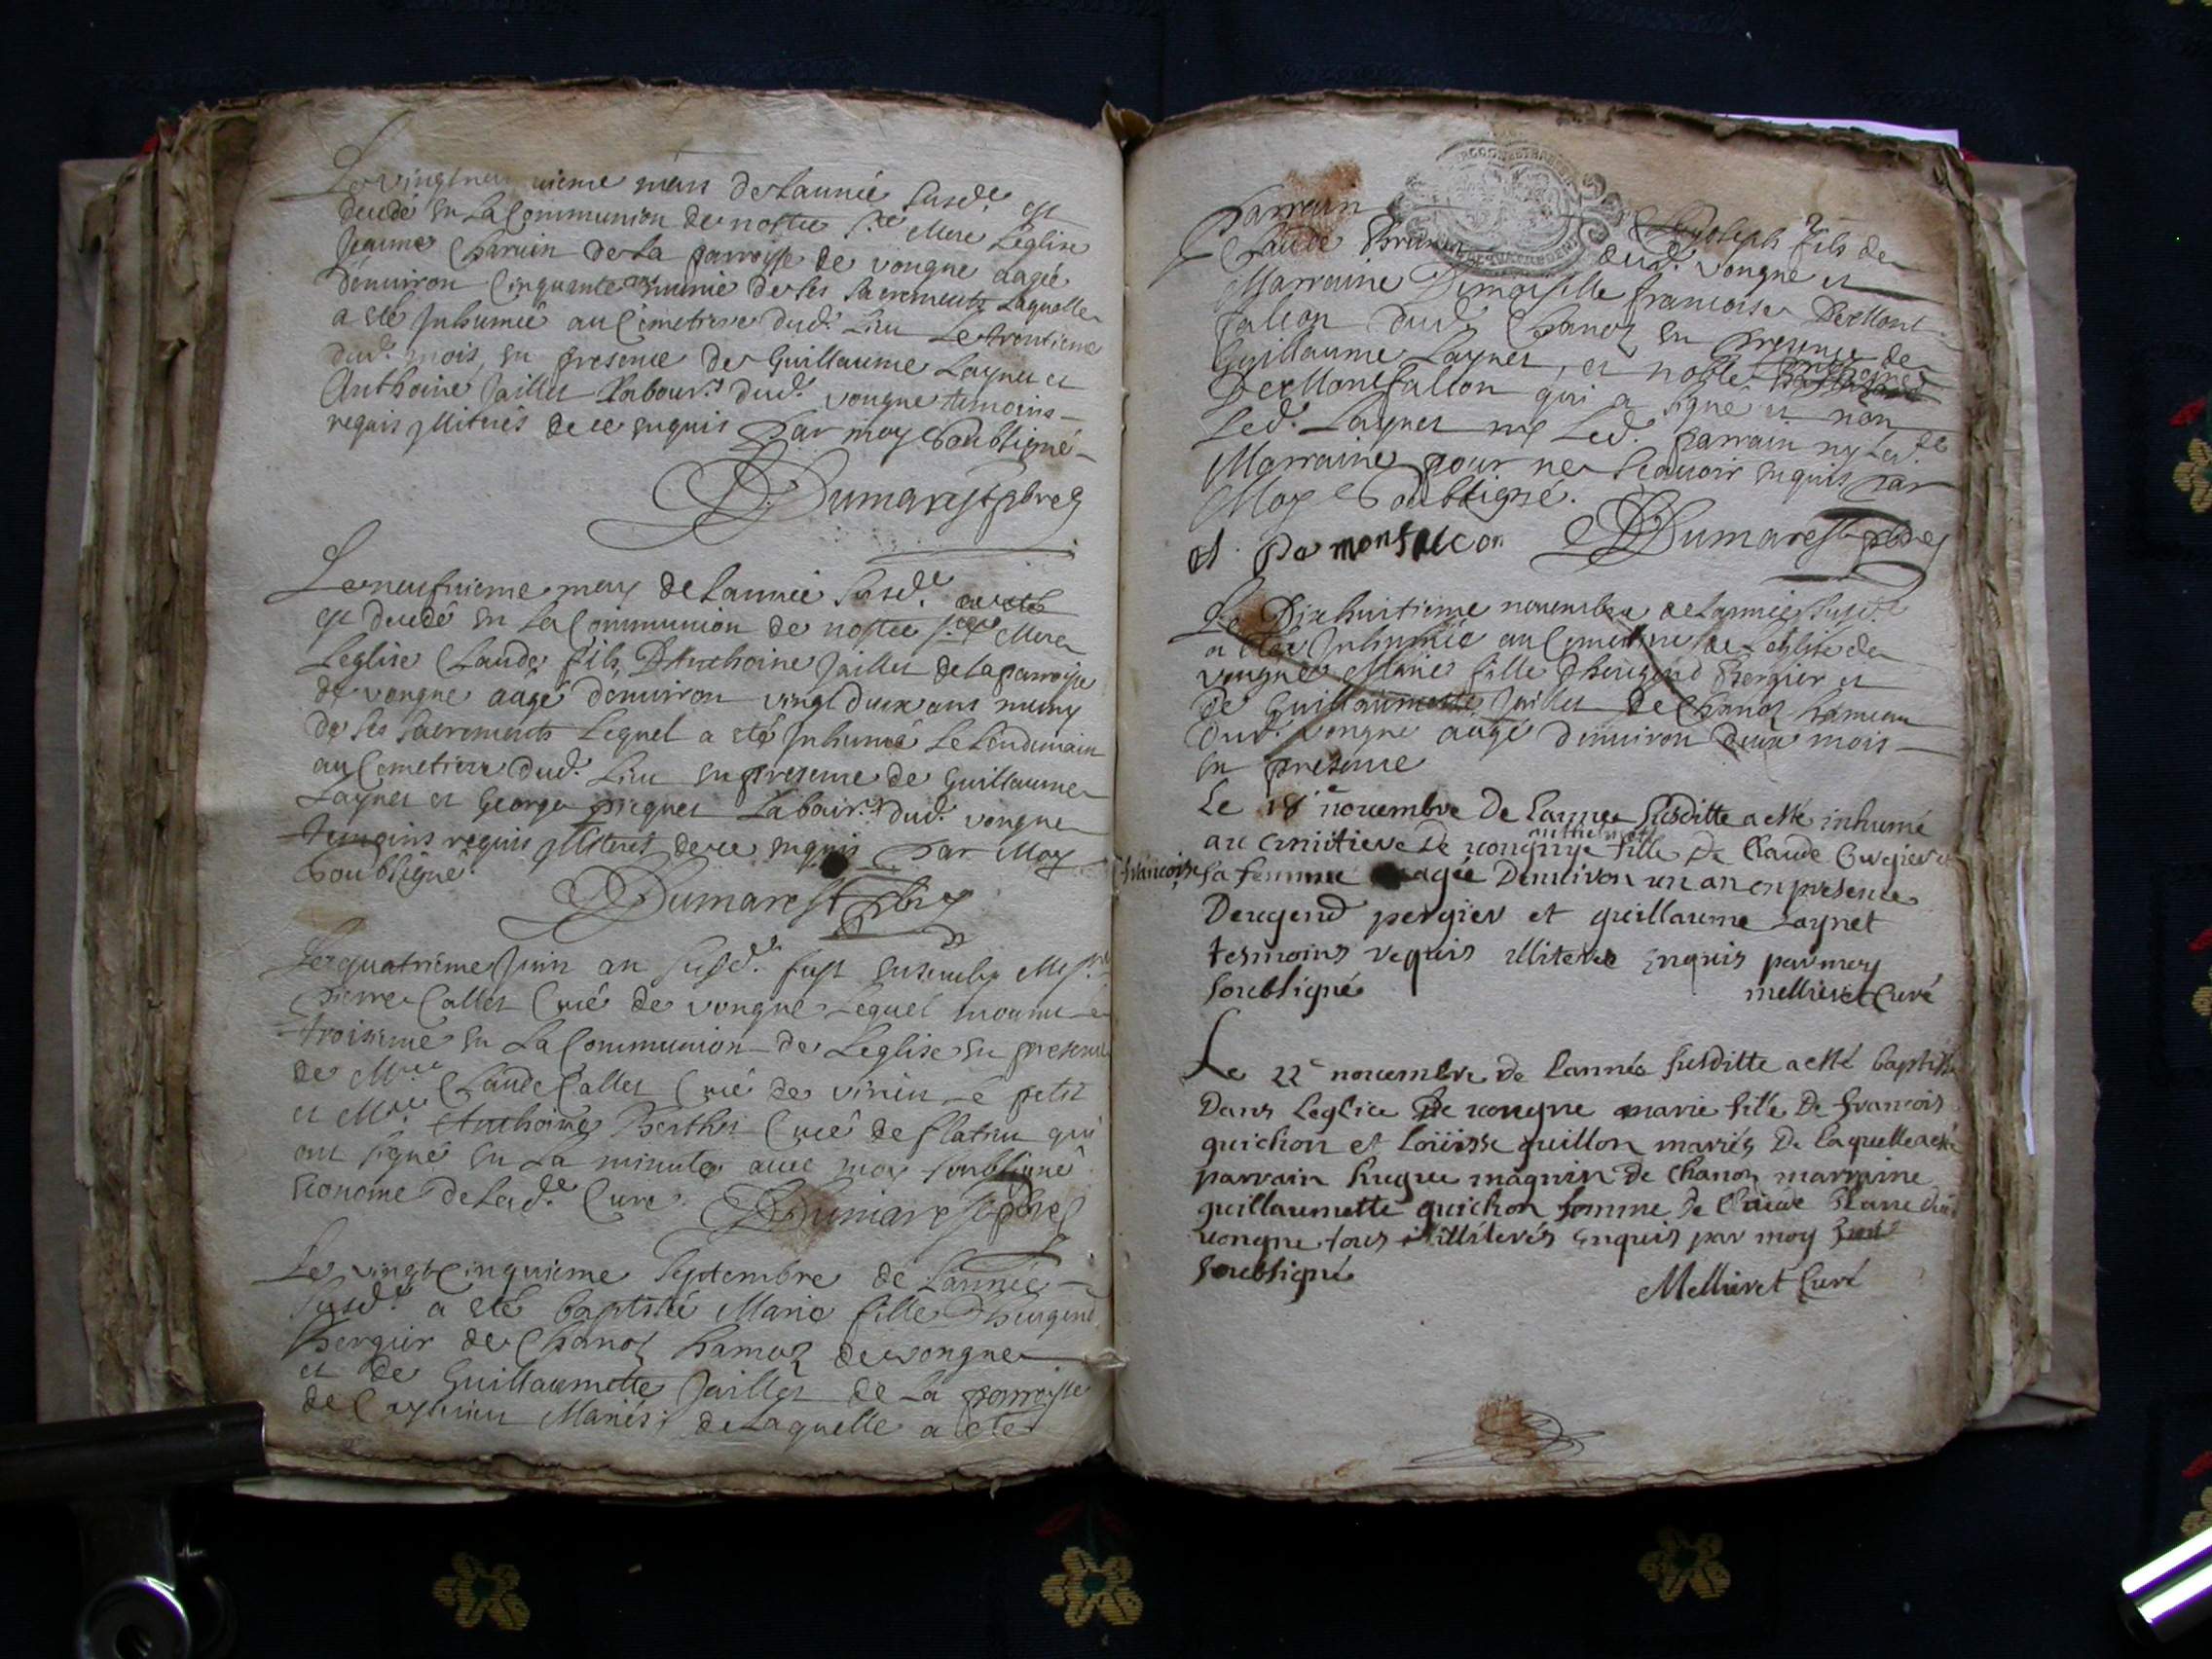 Le vingtneu uieme mars de Lannée susd.e est
decedé en La Communion de nostre s.te Mere Leglise
Jeanne Charuin de La parroisse de vongne aagée
denuiron Cinquante ans munie de ses sacrements Laquelle
a eté Inhumée au Cimetiere dud. Lieu Le trentieme
dud. mois, en presence de Guillaume Laynet et
Anthoine Jaillet Labour.s dud. vongne temoins
requis Illiterés de ce enquis par moy Soubsigné
Dumarest pbre
Le neufuieme mars de Lannée susd.e a esté
est decedé en La Communion de nostre s.te Mere
Leglise Claude fils D'Anthoine Jaillet de La parroisse
de vongne aagé denuiron vingt deux ans muny
de ses sacrements Lequel a eté Inhumé Le Lendemain
au Cemetiere dud. Lieu en presence de Guillaume
Laynet et George picquet Labour.s dud. vongne
temoins requis Illiterés de ce enquis par Moy
Soubsigné
Dumarest pbre
Le quatrieme Juin an susd. fust enseuely Mess.re
pierre Callet Curé de vongne Lequel mourut Le
troisieme en La Communion de Leglise en presence
de M.re Claude Callet Curé de virieu Le petit
et M.re Anthoine Berthet Curé de flaxieu qui
ont signé en La minute auec moy soubsigné
Econome de Lad.e Cure. Dumarest pbre
Le vingtcinquieme Septembre de Lannée
susd.e a eté baptisée Marie fille D'heugend
Bergier de Chanoz hameaz de vongne
et de Guillaumette Jaillet de La parroisse
de Ceyzerieu Mariés; de Laquelle a eté
parrain Joseph fils de
Claude Brunet dud. vongne et
Marraine Dimoiselle francoise De Mont
falcon dud. Chanoz en presence de
Guillaume Laynet, et noble Anthoine
De Montfalcon qui a signé et non
Led. Laynet ny Led. parrain ny Lad.e
Marraine pour ne Scauoir enquis par
Moy Soubsigné.
A. De monfalcon Dumarest pbre
Le Dixhuitieme nouembre de Lannée susd.e
a eté Inhumée au Cemetiere de Leglise de
vongne Marie fille d'heugend Bergier et
de Guillaumette Jaillet de Chanoz hameau
Dud. vongne aagé denuiron deux mois
en presence
Le 18e nouembre De Lannee susditte a esté inhumé
au cimitiere De vongnye fille De Claude Cuzier et
francoise sa femme agée Denuiron un an en presence
Deugend pergier et guillaume Laynet
tesmoins requis illiteres Enquis par moy
soubsigné mellieret Curé
Le 22e nouembre De Lannée susditte a esté baptisée
Dans Leglice De vongne marie fille De francois
guichon et Loüisse guillon mariés De Laquelle a esté
parrain hugue magnin De Chanoz marraine
guillaumette guichon femme De Claude Blanc dud
vongne tous illiterés Enquis par moy
soubsigné Mellieret Curé